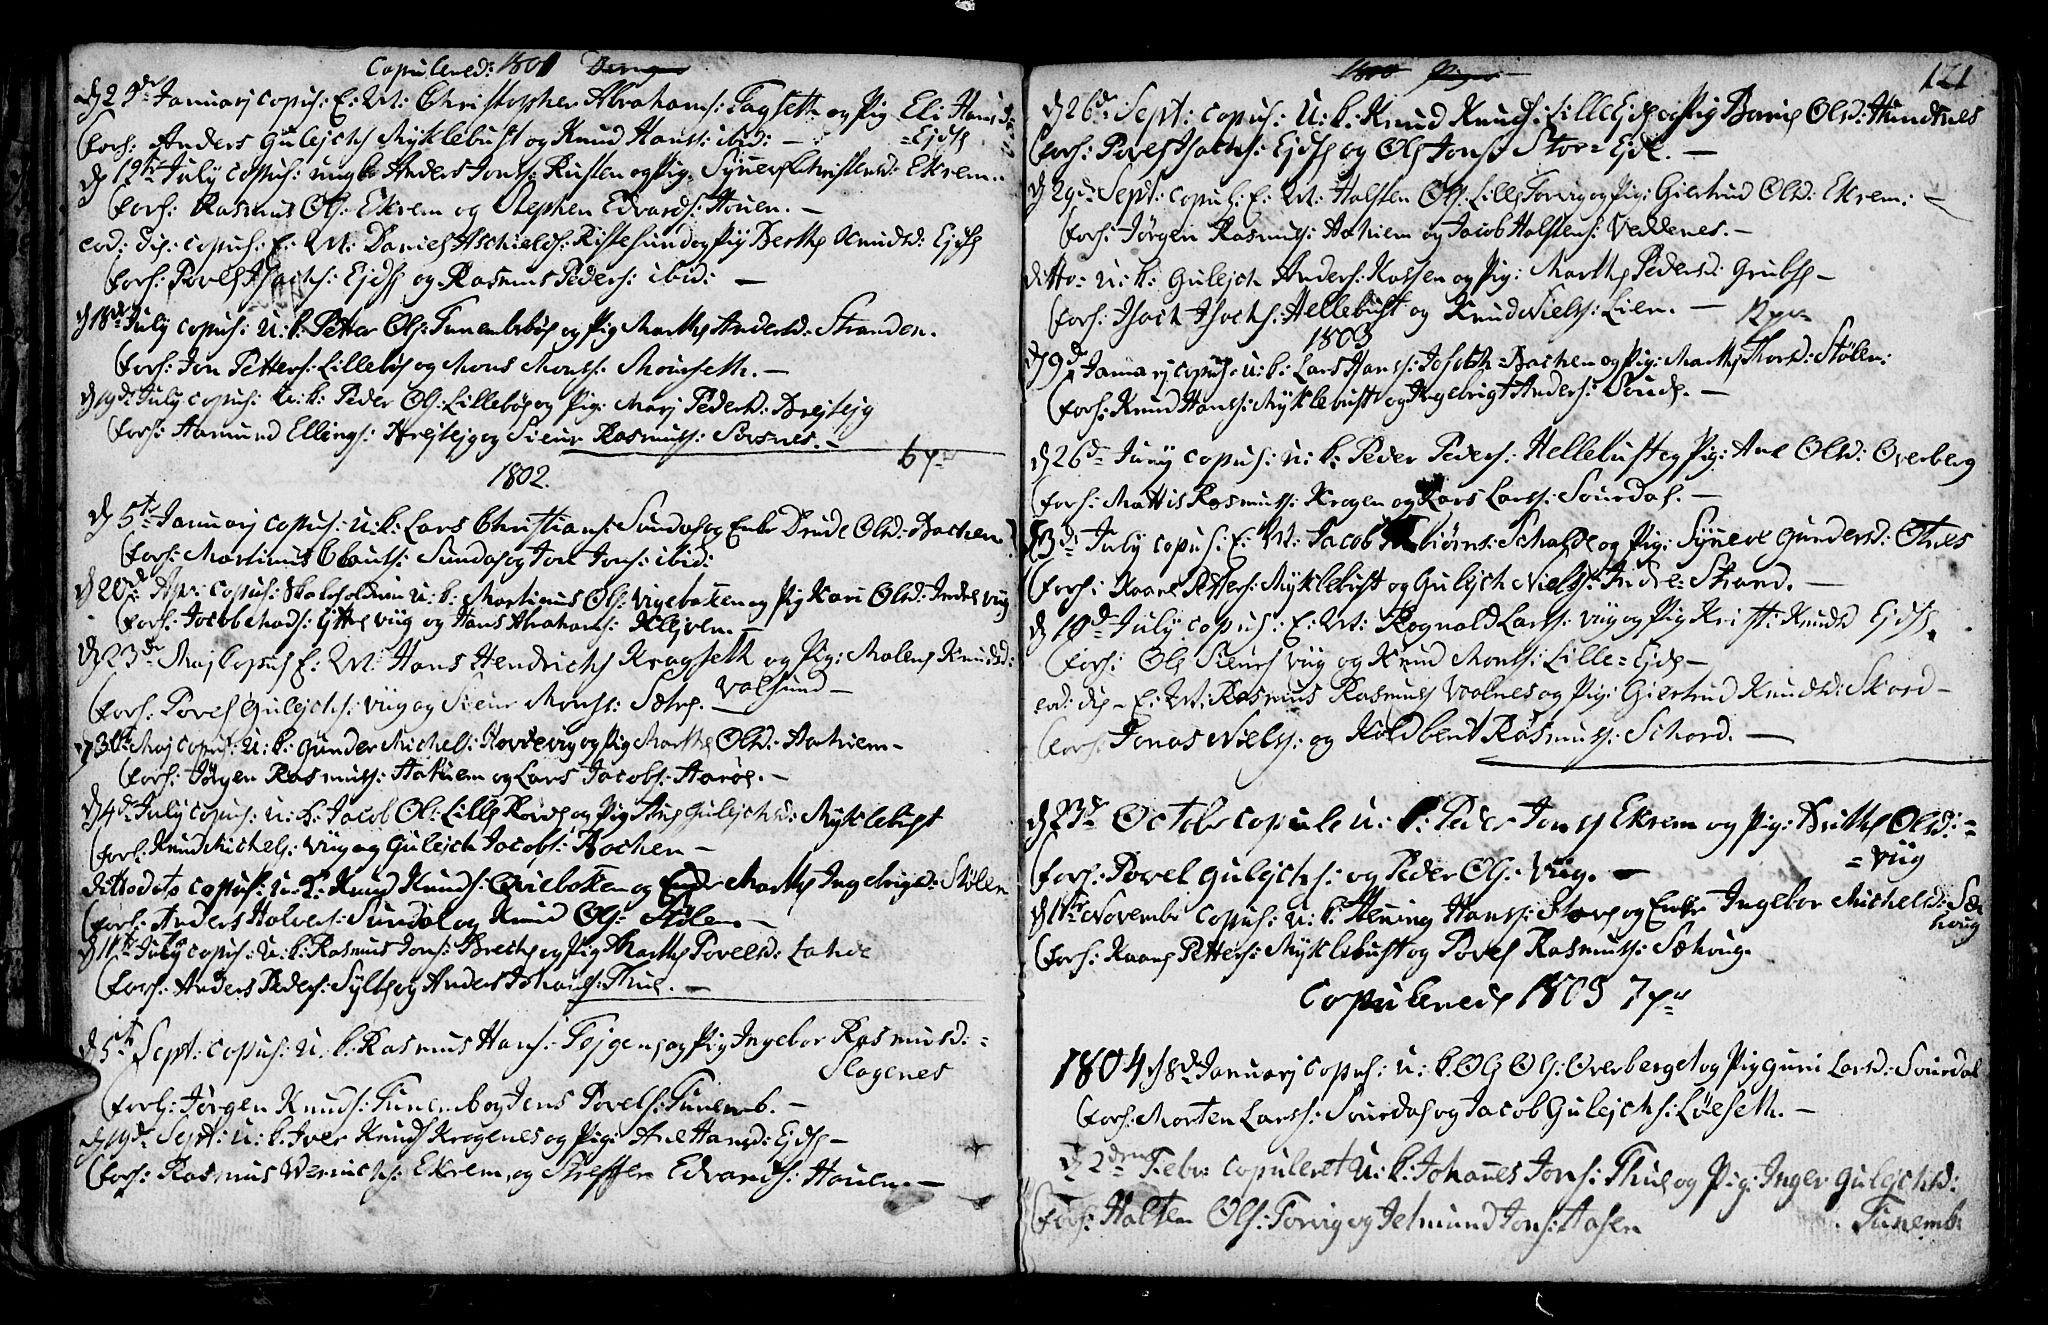 Copulered: 1801
d 29de Januarj copul: E: M: Christopher Abrahams: Tagseth og Pig Eli Hansd:
forl: Anders Gulejchs Myklebust og Knud Hans: ibid: — = Ejde
d 12te July copul: ungk Anders Jons: Rusten og Pig: Synerf Christensd: Ekrem
forl: Rasmus Ols: Ekrem og Stephen Edvards: Houen. —
eod: die: copul: E: M: Daniel Aschields: Ristesund og Pig Berthe Knudsd: Ejde
forl: Povel Isachs: Ejde og Rasmus Peders: ibid: —
d 18de July copul: U: k: Petter Ols: Tunemsbøe og Pig Marthe Andersd: Stranden.
forl: Jon Petters: Lillebøe og Mons Mons: Monseth. —
d 19de July copul: U: k: Peder Ols: Lillebøe og Pig: Marj Pedersd: Brejtejg
forl: Aamund Ellings: Brejtejg og Sieur Rasmuss: Sorsnes. —
6 p
1802.
d 5te Januarj copul: U: k: Lars Christians: Sundal og Enke Drude Olsd: Bachen
forl: Martinus Clauss: Sundal og Jon Jons: ibid:
d 20de Apr: copul: U: k: Martinus Ols: Viigebaken og Pig Kari Olsd: Indre Viig
forl: Jacob Mads: Ytre Viig og Hans Abrahams: Klejven. —
d 23de Maj copul E: M: Hans Hendrichs Kragseth og Pig: Malene Knudsd:
Valsund —
forl: Povel Gulejchs: Viig og Sieur Mons: Sætre. —
d 30te Maj copul: U: k: Gunder Michels: Hovdevig og Pig Marthe Olsd: Aahiem —
forl: Jørgen Rasmuss: Aahiem og Lars Jacobs: Harøe. —
d 4de July copul: U: k: Jacob Ols: Lille Røvde og Pig Ane Gulejchsd: Myklebust
forl: Knud Michels: Viig og Gulejch Jacobs: Bachen —
ditto dito copul: U: k: Knud Knuds: Qviebaken og Enke Marthe Ingebrigtsd: Stølen
forl: Anders Halvors: Sundal og Knud Ols: Stølen —
d 11te July copul: U: k: Rasmus Jons: Breche og Pig Marthe Povelsd: Lande
forl: Anders Peders: Sylte og Anders Johans: Thue. —
d 5te Sept: copul: U: k: Rasmus Hans: Tejgene og Pig Ingebor Rasmusd: =
Slagenes
forl: Jørgen Knuds: Tunemb og Jens Povels: Tunemb. —
d 19de Sept: U: k: Iver Knuds Krogenes og Pig: Ane Hansd: Ejde —
forl: Rasmus Werniches: Ekrem, og Steffen Edvards: Houen. —
121
d 26de Sept: copul: U: k: Knud Knuds: Lille Ejde og Pig Berit Olsd: Hundsnes
forl: Povel Isachs: Ejde og Ole Jons: Stor = Ejde. —
d 29de Sept: copul: E: M: Halsten Ols: Lille Torvig og Pig: Giertrud Olsd: Ekrem: —
forl: Jørgen Rasmuss: Aahiem og Jacob Halstens: Veddenes. —
ditto U: k: Gulejch Anders: Kossen og Pig: Marthe Pedersd: Grubse —
forl: Isach Isachs: Hellebust og Knud Niels: Lien. — 12 p
1803
d 9de Januarj copul: U: k: Lars Hans: Bachen og Pig: Marthe Thorsd: Stølen:
forl: Knud Hans: Myklebust og Ingebrigt Anders: Soude. —
d 26de Juny copul: U: k: Peder Peders: Hellebust og Pig: Ane Olsd: Overberg
forl: Mattis Rasmuss: Krogen og Lars Lars: Sourdal. —
d 3de July copul: E: M: Jacob Asbiørns: Schalde og Pig: Synere Gundersd: Otnes
forl: Kaare Petters: Myklebust og Gulejch Niels: Indre: Strand. —
d 10de July copul: E: M: Rognald Lars: Viig og Pig Krist: Knudsd Ejde.
forl: Ole Sieurs Viig og Knud Mons: Lille = Ejde —
eod: die — E: M: Rasmus Rasmuss Volnes og Pig: Giertrud Knudsd: Skord —
forl: Jonas Niels: og Koldbent Rasmuss: Schord. —
d 23de Octobr copule U: k: Peder Jons Ekrem og Pig: Brithe Olsd: =
= Viig
forl: Povel Gulejchs: og Peder Ols: Viig. —
d 11te Novembr copul: U: k: Hening Hans: Støre og Enke Ingebor Michelsd: Sæ
houg
forl: Kaare Petters: Myklebust og Povel Rasmuss: Sæhoug.
Copulerede 1803 7 p
1804 d 8de Januarj copul: U: k. Ole Ols: Overberget og Pig Guri Larsd: Sourdal
forl: Morten Lars: Sourdal og Jacob Gulejchs: Løeseth. —
d 2den Febr: copuleret U: k: Johannes Jons: Thue og Pig: Inger Gulejchsd:
Tunemb:
forl: Halsten Ols: Torvig og Jetmund Jons: Aasen